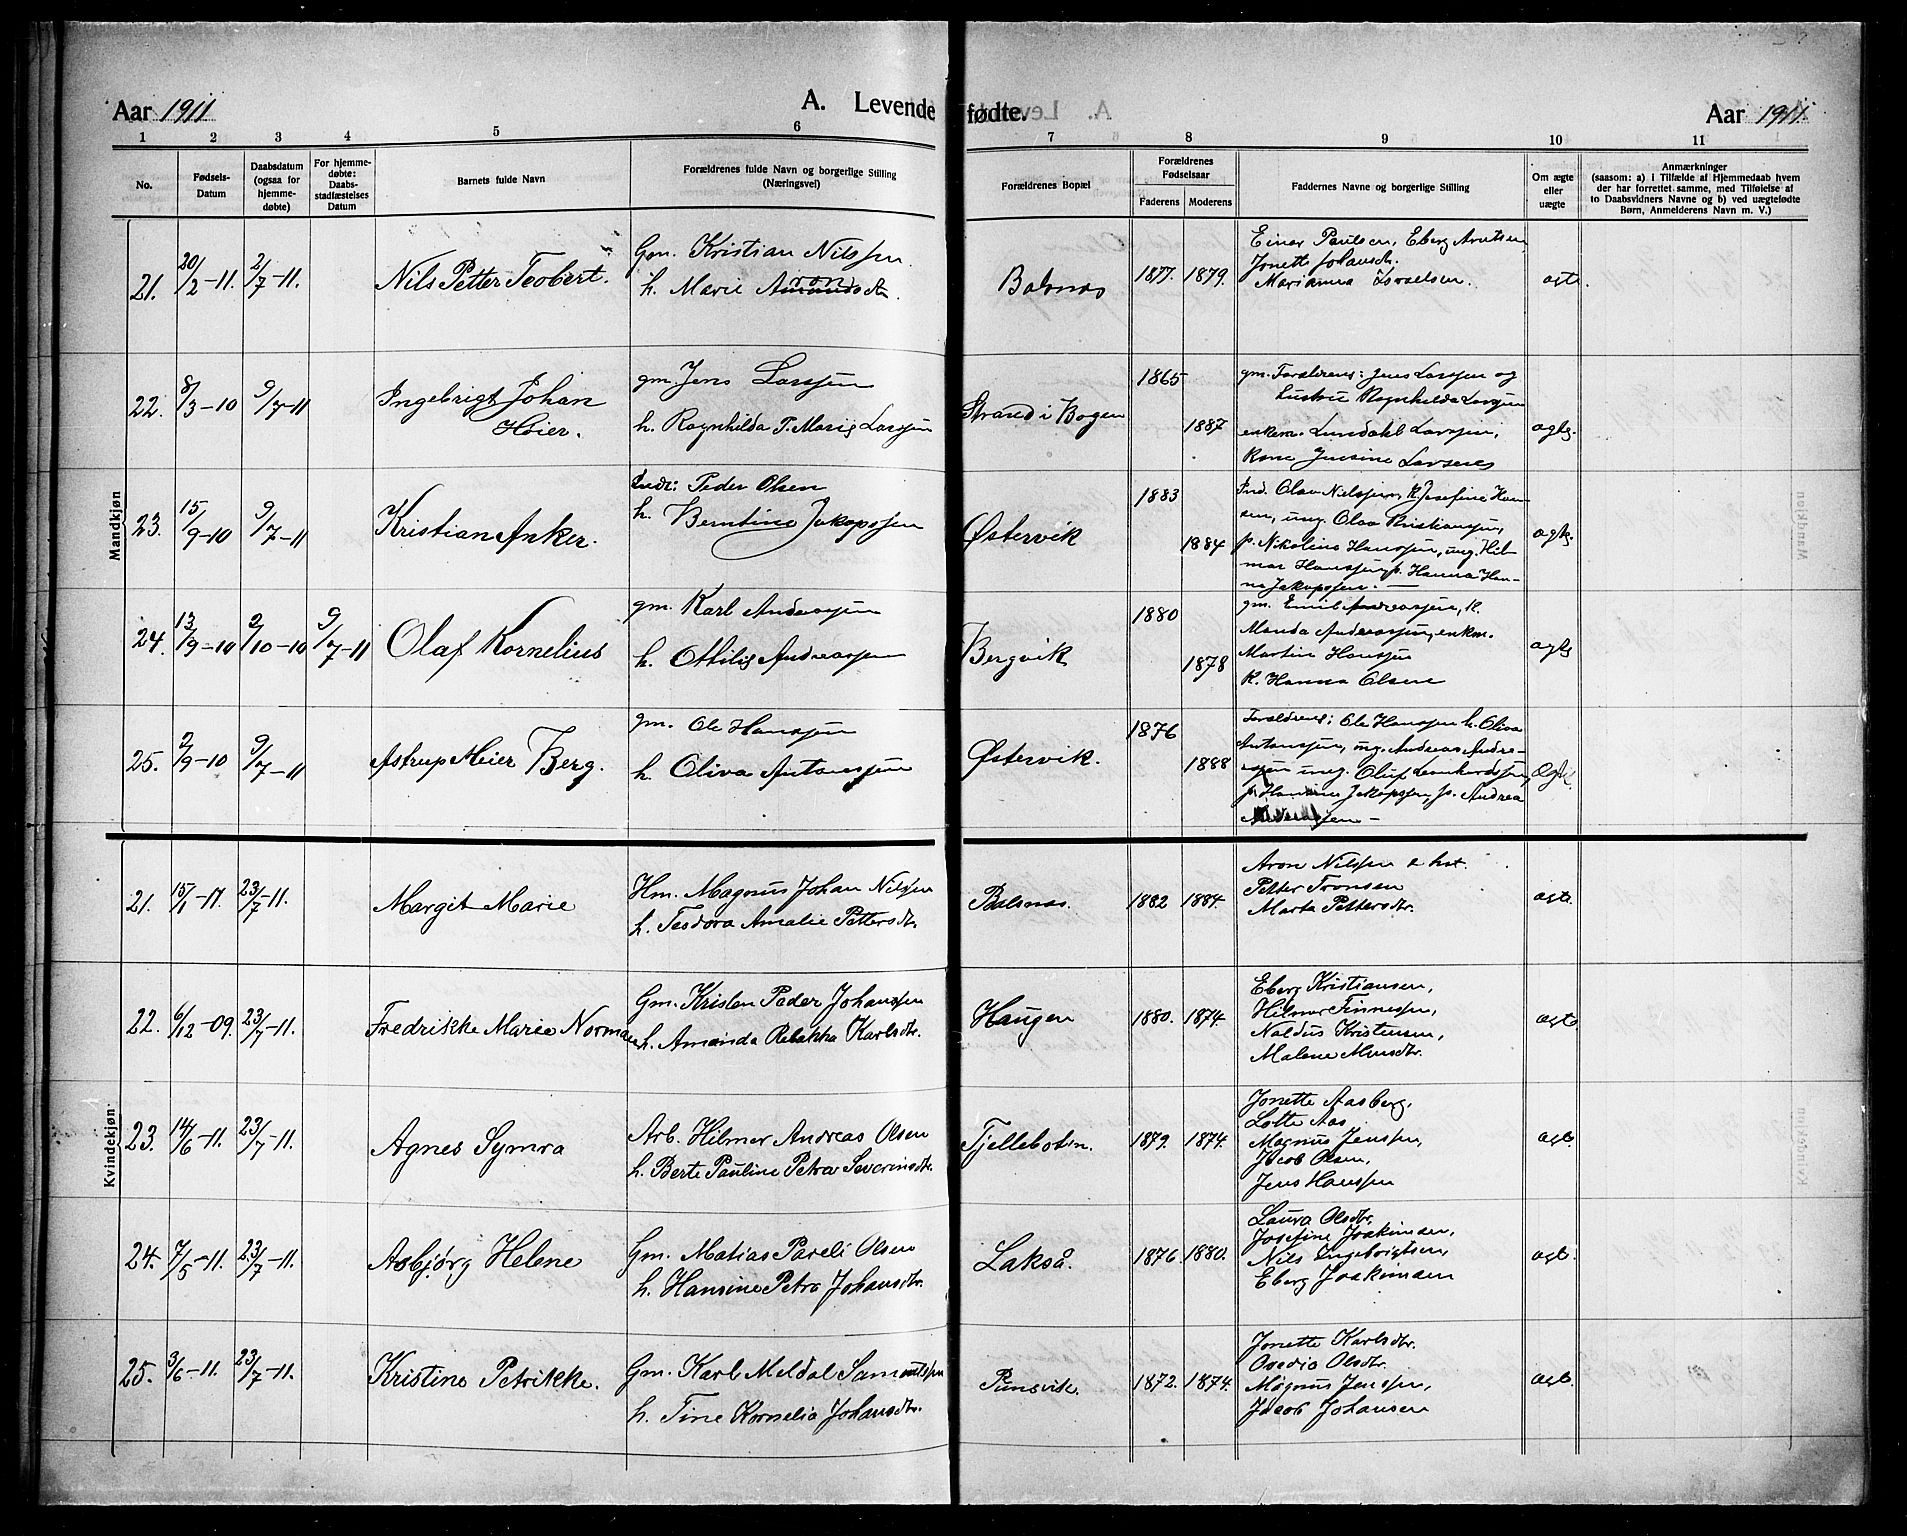 Aar 1911
A. Levende
fødte.
Aar 1911.
1 2 3 4 5 6 7 8 9 10 11
No.
Fødsels-
Datum
Daabsdatum
(ogsaa for
hjemme-
døbte)
For hjemme-
døbte:
Daabs-
stadfæstelses
Datum
Barnets fulde Navn
Forældrenes fulde Navn og borgerlige Stilling
(Næringsvei)
Forældrenes Bopæl
Forældrenes
Fødselsaar
Faderens Moderens
Faddernes Navne og borgerlige Stilling
Om ægte
eller
uægte
Anmærkninger
(saasom: a) i Tilfælde af Hjemmedaab hvem
der har forrettet samme, med Tilføielse af
to Daabsvidners Navne og b) ved uægtefødte
Børn, Anmelderens Navn m. V.)
Mandkjøn
21. 20/2-11. 2/7-11. Nils Petter Teobert.
Gm. Kristian Nilssen.
h. Marie
Balsnas 1877. 1879.
Einar Paulsen, Eberg Arntsen
Jonette Johansdr.
Marianna Israelsen.
agte.
22. 8/3-10 9/7-11 Ingebrigt Johan
Heier.
gm. Jens Larssen
h. Ragnhilda P. Marie Larssen
Strand i Bogen 1865 1887
gm. Forældrene: Jens Larssen og
Hustru Ragnhilda Larssen
enkem. Lundahl Larssen,
Kone Jensine Larsens
agte.
23. 15/9-10 9/7-11 Kristian Anker.
Indr: Peder Olsen
h. Berntine Jakopssen
Østervik 1883 1884
Ind. Olav Nilssen, K. Josefine Han-
sen, ung. Olaa Kristianssen,
p. Nikoline Hanssen, ung. Hil-
mar Hanssen, p. Hanna Han-
na Jakopssen.
agte.
24. 13/9-10 2/10-10 9/7-11 Olaf Kornelius
gm. Karl Andreassen
h. Ottilie Andreassen
Bergvik 1880 1878
gm. Emil Andreassen, K.
Manda Andreassen, enkm.
Martin Hanssen
K. Hanna Olsen
agte
25. 2/9-10 9/7-11 Astrup Meier Berg.
gm. Ole Hanssen
h. Oliva Antonssen
Østervik. 1876 1888
Forældrene: Ole Hanssen h. Oliva
Antonssen, ung. Andreas Andre-
assen ung. Oluf Leonhardssen,
p. Hansine Jakopssen, p. Andrea
Andreassen -
Ægte.
Kvindekjøn.
21. 15/1-11. 23/7-11. Margit Marie
Hm. Magnus Johan Nilssen
h. Teodora Amalie Pettersdtr.
Balsnas. 1882 1884.
Aron Nilssen & hst.
Petter Tronsen
Marta Pettersdtr.
agte.
22. 6/12-09. 23/7-11. Fredrikke Marie Norman
Gm. Kristen Peder Johanssen
h. Amanda Rebakka Karlsdtr.
Haugen 1880. 1874.
Eberg Kristiansen,
Hilmar Finnessen,
Naldus Kristensen,
Malene Monsdtr.
agte
23. 14/6-11. 23/7-11. Agnes Symra
Arb. Hilmer Andreas Olsen
h. Berte Pauline Petra Severinsdtr.
Fjellebotn. 1879. 1874.
Jonette Aasberg,
Lotte Aas
Magnus Jenssen,
Jacob Olsen,
Jens Hanssen
agte.
24. 7/5-11. 23/7-11. Asbjørg Helene
Gm. Matias Pareli Olsen
h. Hansine Petra Johansdtr.
Lakså. 1876. 1880.
Laura Olsdtr,
Josefine Joakimsen,
Nils Ingebrigtsen,
Eberg Joakimsen
agte.
25. 3/6-11. 23/7-11. Kristine Petrikke.
Gm. Karl Meldal Samuelssen
h. Tine Kornelia Johansdtr.
Punsvik. 1872. 1874.
Jonette Karlsdtr.
Ovedia Olsdtr.
Magnus Jenssen,
Jacob Johansen
agte.